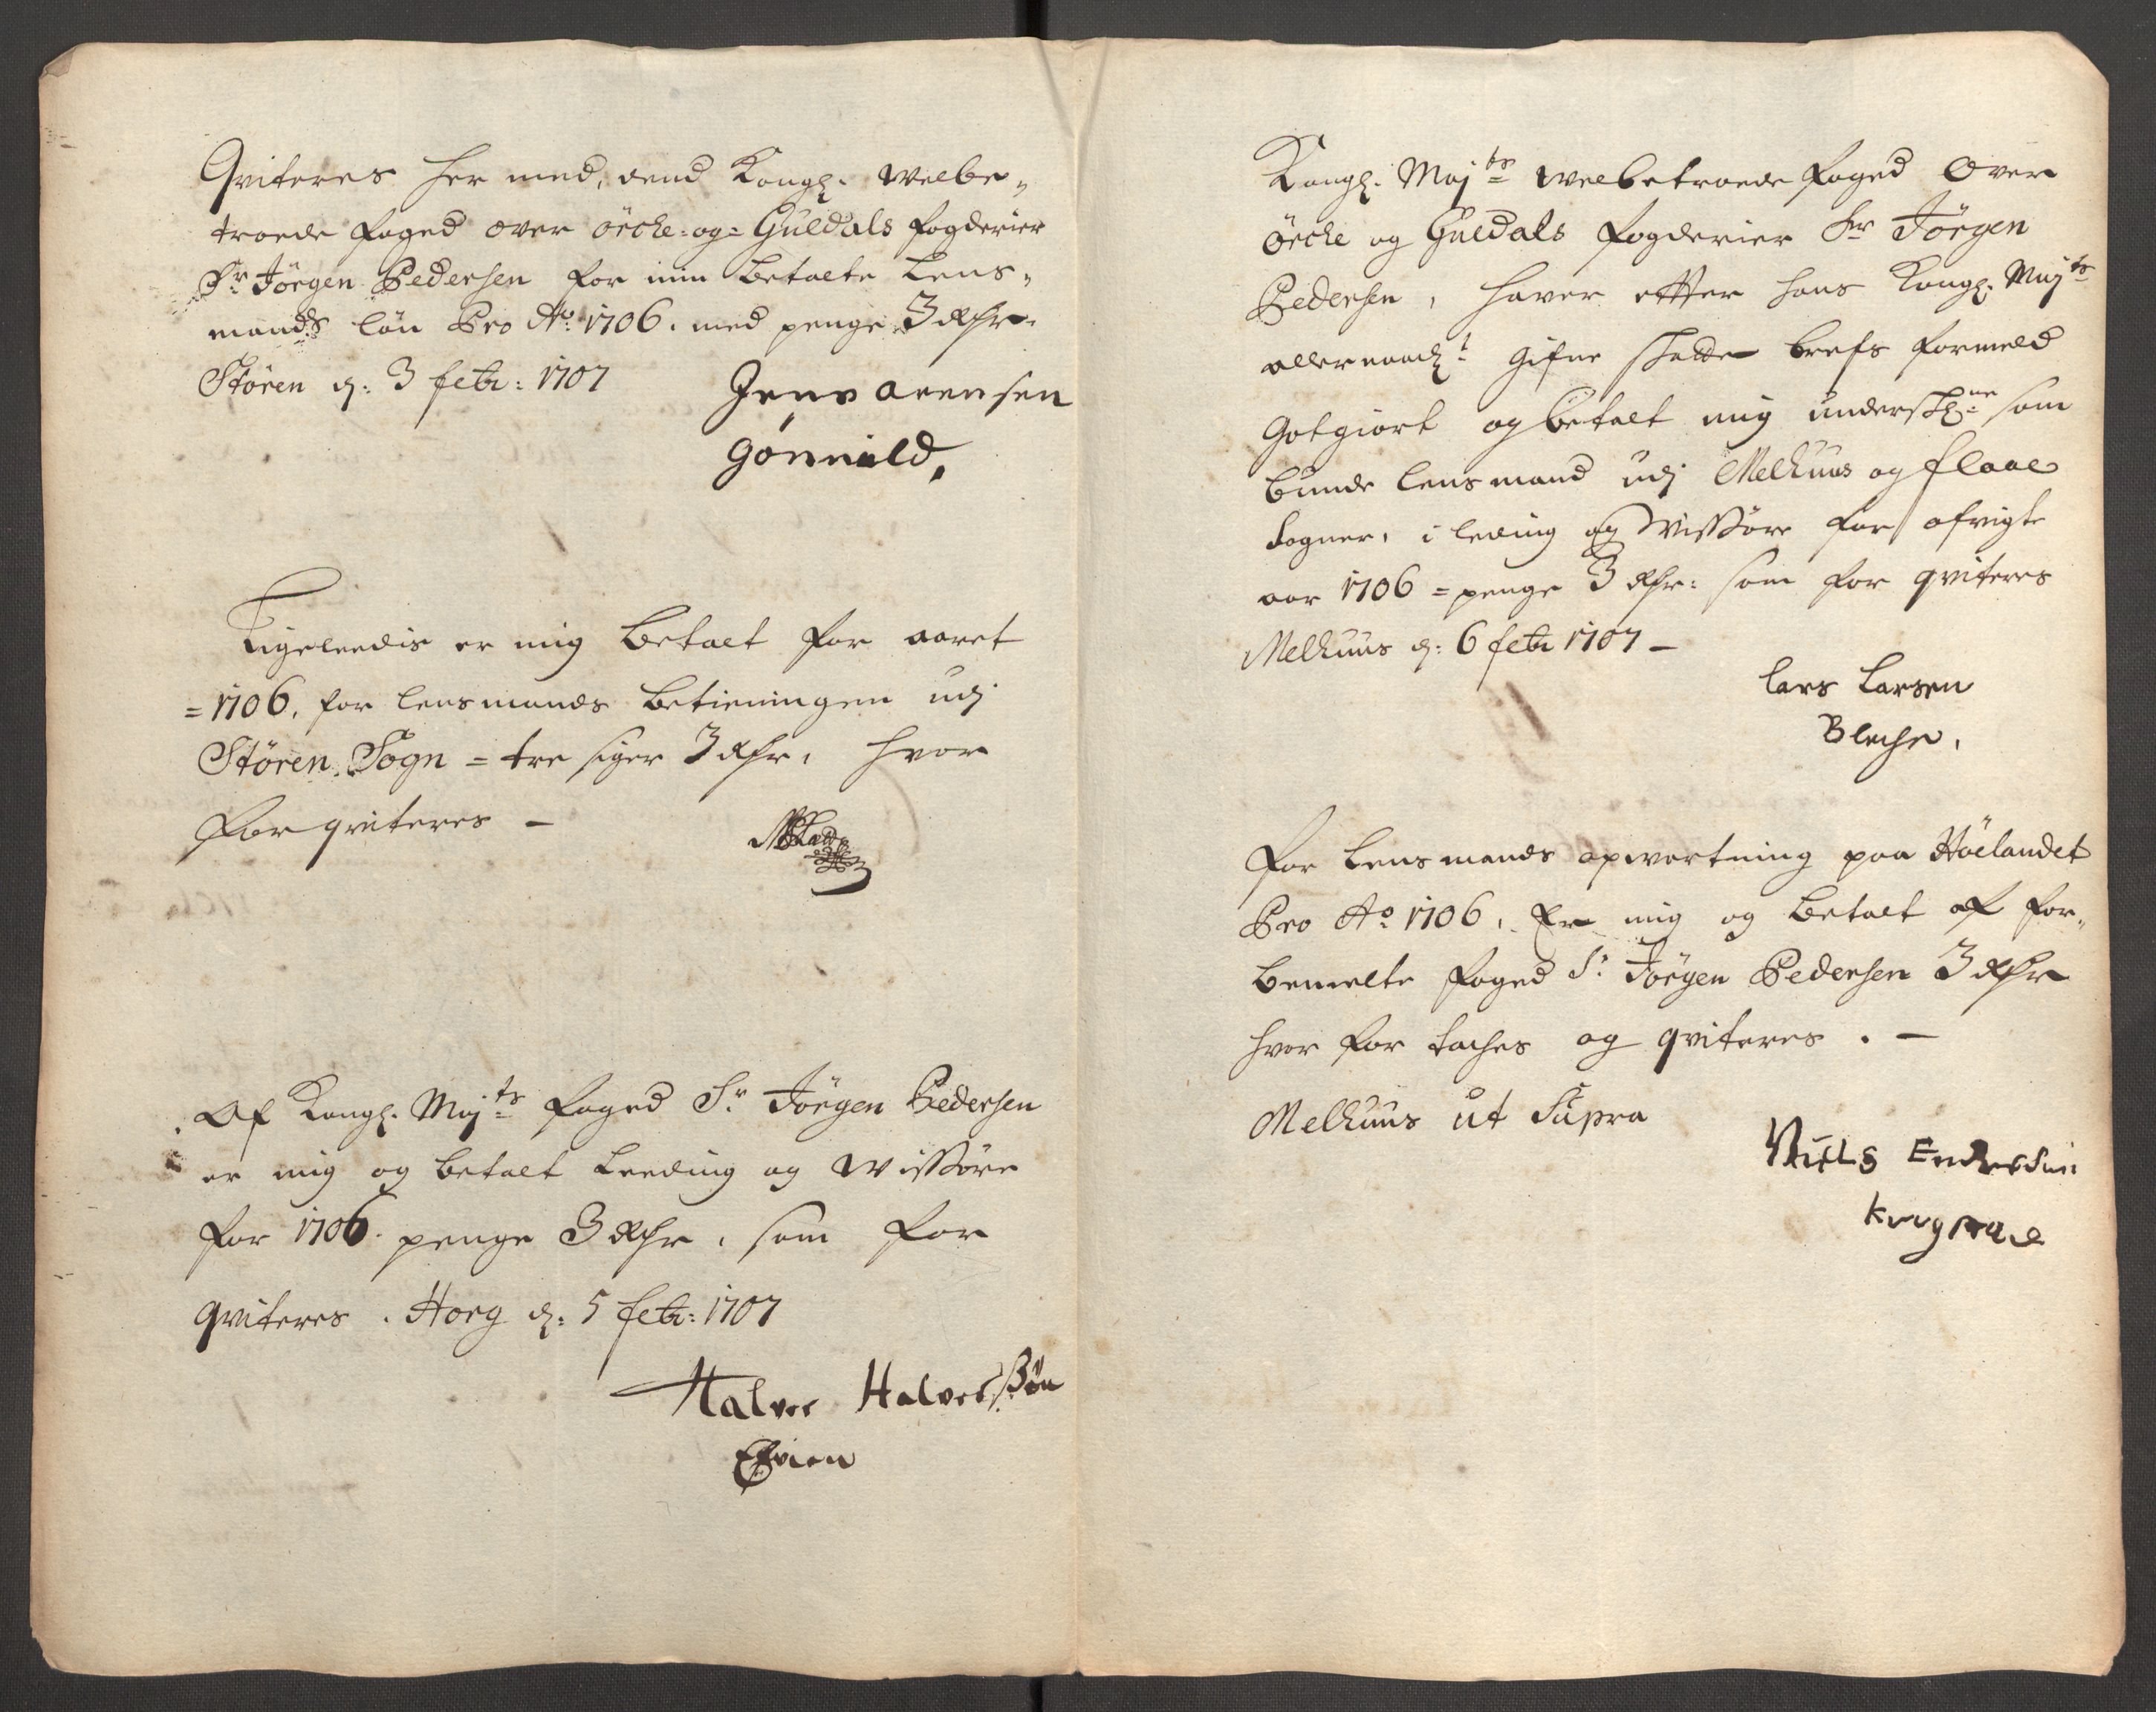 Qviteres her med, dend Kongl. welbe„
troede foged over örche- og= Guldals fogderier
Sr Jörgen Pedersen for min betalte Lens„
mands lön Pro Ao: 1706. med penge 3 Rdr.
Stören d: 3 febr: 1707
Jens arensen
gonnild.
Ligeleedis er mig betalt for aaret
=1706. for lensmands betieningen udj
Stören Sogn = tre siger 3 Rdr, hvor
for qviteres –
Af Kongl. Majts foged Sr Jörgen Pedersen
er mig og betalt Leeding og wissöre
for 1706. penge 3 Rdr, som for
qviteres. Horg d: 5 febr: 1707
Halvor Halvorssön
Kongl. Majts welbetroede foged Over
Örche og Guldals fogderier Sr Jörgen
Pedersen, haver efter hans Kongl. Majts
allernaadt gifne schatte brefs formeld
Gotgiort og betalt mig underschne som
bunde lensmand udj Melhuus og flaae
Sogner, i leding og Wissöre for afvigte
aar 1706 = penge 3 Rdr: som for qviteres
Melhuus d: 6 febr 1707 –
lars Larsen
Bleche.
for Lensmands opwartning paa Höelandet
Pro Ao 1706, Er mig og betalt af for„
bemelte foged Sr Jörgen Pedersen 3 Rdr
hvor for taches og qviteres . –
Melhuus ut Supra
Niels Endersen